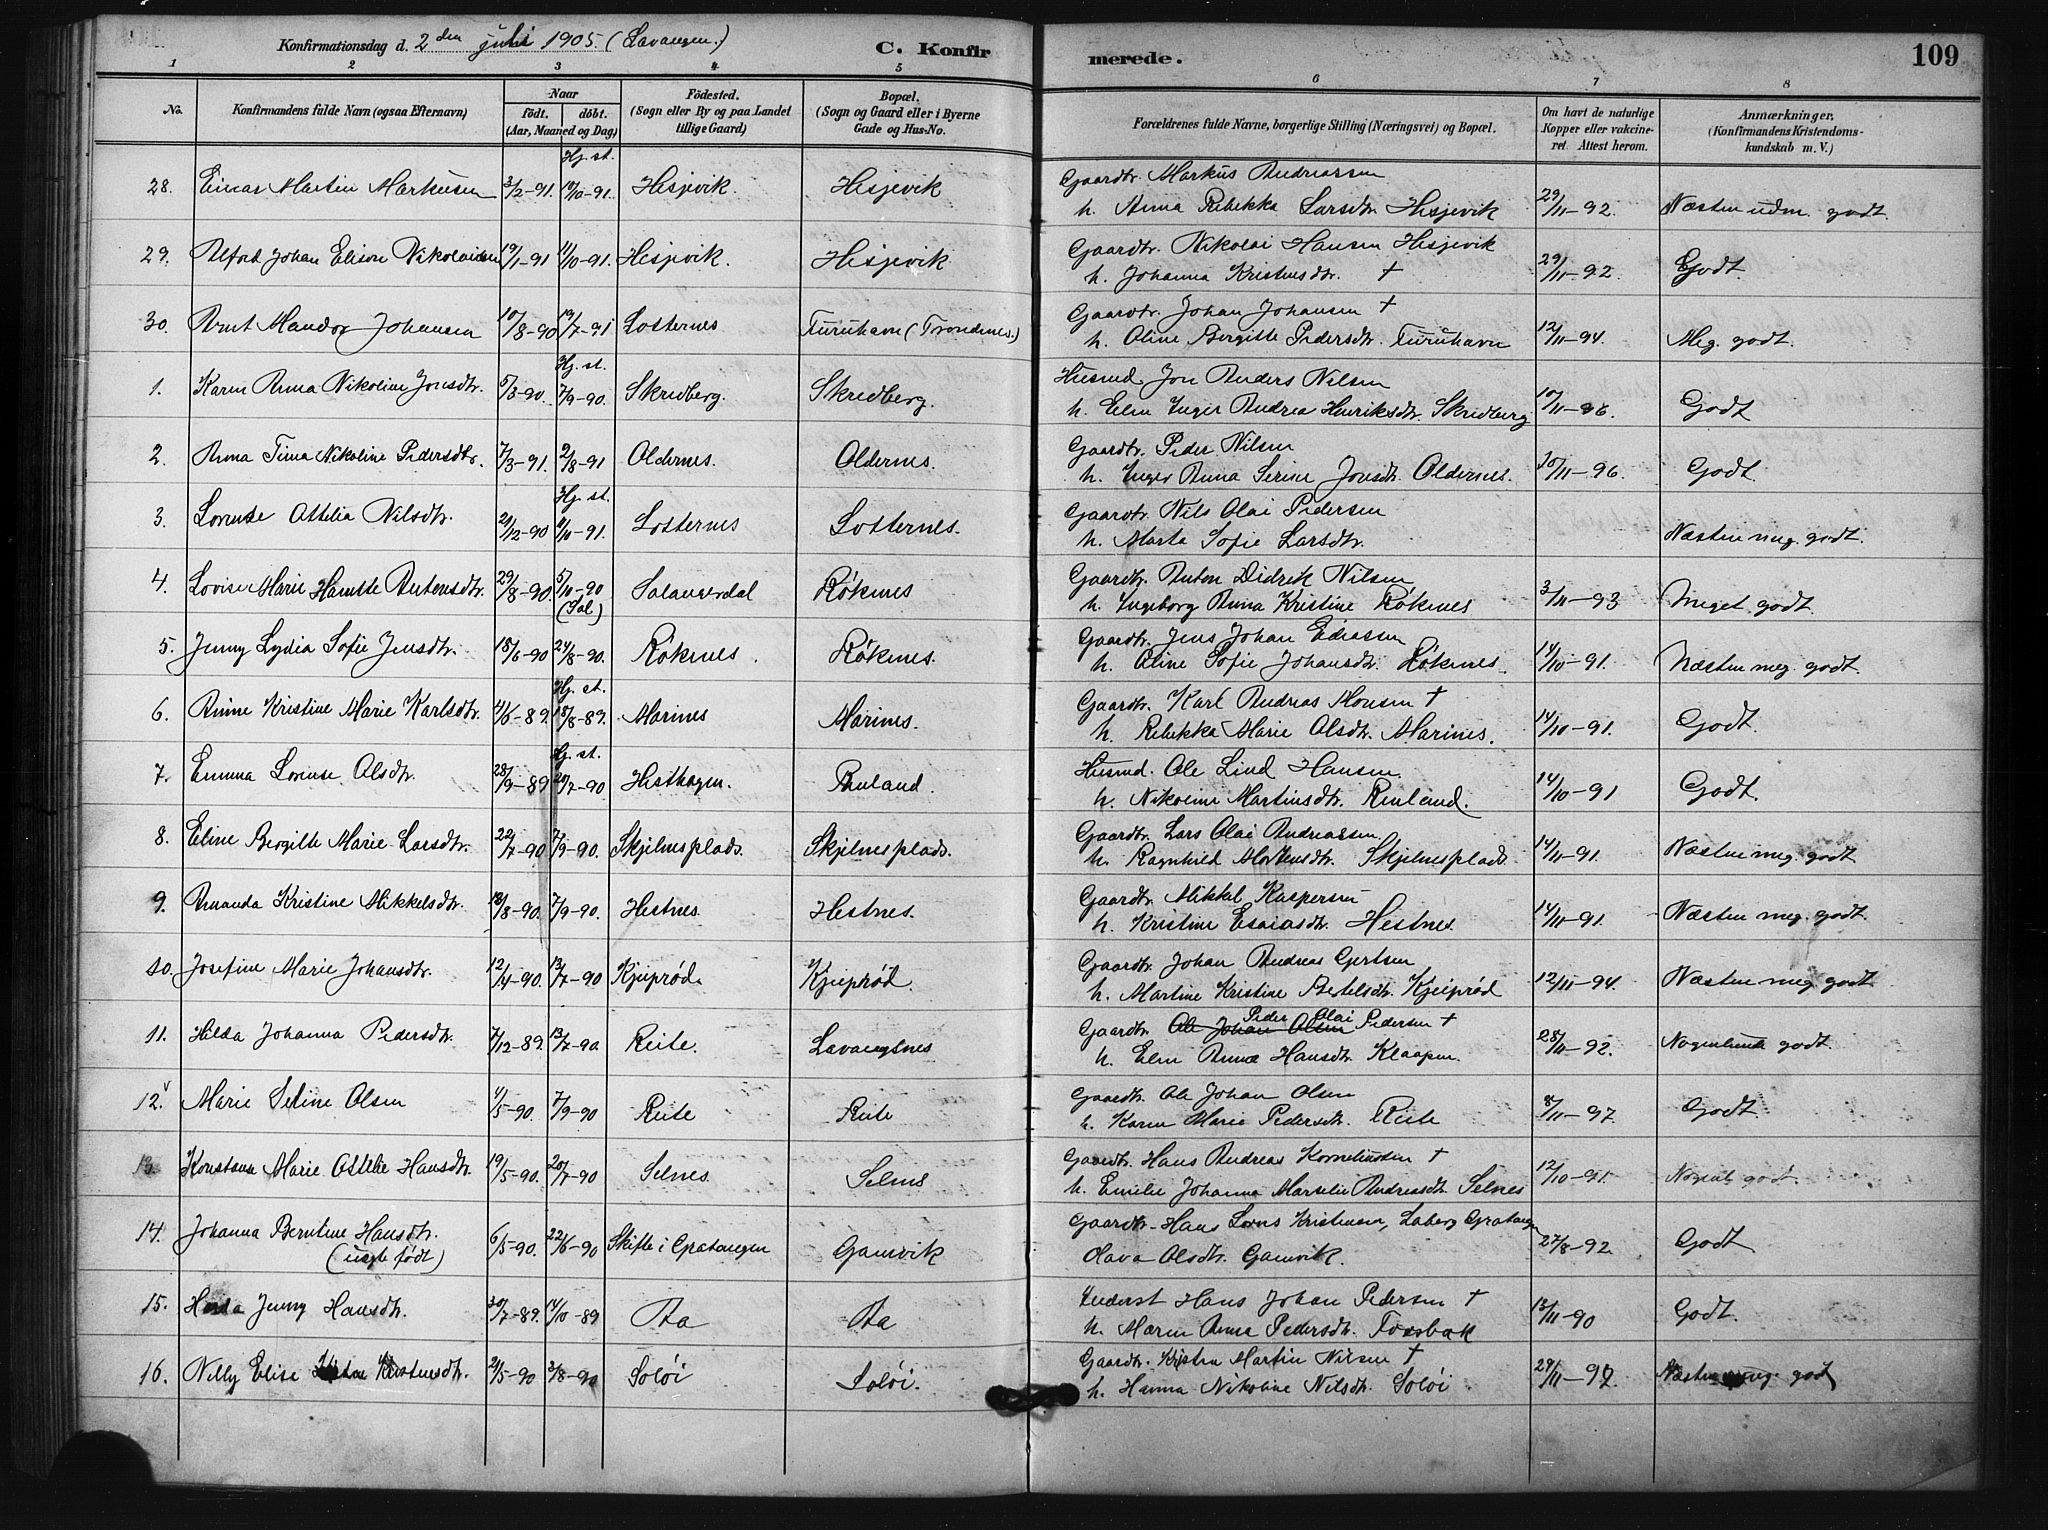 Konfirmationsdag d. 2den juli 1905. (Lavangen.) C. Konfirmerede. 109
1 2 3 4 5 6 7 8
No. Konfirmandens fulde Navn (ogsaa Efternavn) Naar født. døbt. (Aar, Maaned og Dag) Fødested. (Sogn eller By og paa Landet tillige Gaard) Bopæl. (Sogn og Gaard eller i Byerne Gade og Hus-No. Forældrenes fulde Navne, borgerlige Stilling (Næringsvei) og Bopæl. Om havt de naturlige Kopper eller vakcineret. Attest herom. Anmærkninger. (Konfirmandens Kristendomskundskab m. V.)
28. Einar Martin Markusen 3/2-91. Hj. st. 18/10-91. Hisjevik. Hisjevik Gaardbr. Markus Andreassen
h. Anna Rebekka Larsdtr. Hisjevik 29/11-92. Næsten udm. godt.
29. Alfred Johan Elison Nikolaisen 19/1-91 11/10-91. Hisjevik. Hisjevik Gaardbr. Nikolai Hansen Hisjevik
h. Johanna Kristensdtr. † 29/11-92. Godt.
30. Arnt Mandor Johansen 10/8-90 19/7-91 Lotternes Furuhavn (Trondenes.) Gaardbr. Johan Johansen †
h. Oline Bergitte Pedersdtr. Furuhavn 12/11-94. Meg. godt.
1. Karen Anna Nikoline Jonsdtr. 5/3-90. Hj. st. 7/9-90. Skredberg. Skredberg. Husmd Jon Anders Nilsen
h. Elen Inger Andrea Henriksdtr. Skredberg 10/11-96. Godt
2. Anna Tina Nikoline Pedersdtr. 7/3-91. 2/8-91 Oldernes. Oldernes. Gaardbr. Peder Nilsen
h. Inger Anna Serine Jonsdtr. Oldernes. 10/11-96. Godt
3. Lorentse Attelia Nilsdtr. 21/12-90 Hj. st. Lotternes Lotternes. Gaardbr. Nils Olai Pedersen
h. Marta Sofie Larsdtr. Næsten meg. godt.
4. Lovise Marie Hamtse Antonsdtr. 29/8-90. 5/10-90 (Sal) Salangsdal Røkenes Gaardbr. Anton Didrik Nilsen
h. Ingeborg Anna Kristine Røkenes 3/11-93 Meget godt.
5. Jenny Lydia Sofie Jensdtr. 18/6-90 24/8-90. Røkenes. Røkenes. Gaardbr. Jens Johan
h. Oline Sofie Johansdtr. Røkenes. 14/10-91. Næsten meg. godt
6. Anne Kristine Marie Karlsdtr. 4/6-89. Hj. st. 18/8-89. Marines Marines. Gaardbr. Karl Andreas Monsen †
h. Rebekka Marie Olsdtr. Marines. 14/10-91. Godt.
7. Emma Lorense Olsdtr. 28/9-89 Hj. st. 20/7-90 Hesthagen. Rinland. Husmd. Ole Lind Hansen.
h. Nikoline Martinsdtr. Rinland. 14/10-91 Godt.
8. Eline Bergitte Marie Larsdtr. 22/7-90 7/9-90. Skjelnesplads. Skjelnesplads. Gaardbr. Lars Olai Andreassen.
h. Ragnhild Mortensdtr. Skjelnesplads. 14/11-91. Næsten meg. godt
9. Amanda Kristine Mikkelsdtr. 18/8-90. 7/9-90. Hestnes. Hestnes. Gaardbr. Mikkal Kaspersen
h. Kristine Esaiasdtr. Hestnes. 14/11-91. Næsten meg. godt.
10. Josefine Marie Johansdtr. 12/4-90. 13/7-90 Kjeiprød. Kjeiprød. Gaardbr. Johan Andreas Gertsen
h. Martine Kristine Bertelsdtr. Kjeiprød 12/11-94. Næsten meg. godt.
11. Hilda Johanna Pedersdtr. 7/12-89. 13/7-90. Reite. Lavangsnes Gaardbr. Ole Johan Olsen Peder Olai Pedersen †
h. Elen Anna Hansdtr. Klaapen. 28/11-92. Nogenlunde godt.
12. Marie Setine Olsen 4/5-90. 7/9-90 Reite Reite Gaardbr. Ole Johan Olsen
h. Karen Marie Pedersdtr. Reite 8/11-97. Godt
13. Konstanse Marie Attelie Hansdtr. 19/5-90. 20/7-90 Selnes. Selnes Gaardbr. Hans Andreas Korneliussen †
h. Emelie Johanna Marselie Andreasdtr. Selnes 12/10-91. godt.
14. Johanna Berntine Hansdtr. (uægte født) 6/5-90. 22/6-90 Skifte i Gratangen Gamvik Gaardbr. Hans Lorns Kristensen, Laberg Gratangen
Olava Olsdtr. Gamvik. 27/8-92. Godt
15. Jenny Hansdtr. 30/7-89. 14/10-89 Aa Aa Inderst Hans Johan Pedersen †
h. Maren Anna Pedersdtr. Fossbak 13/11-90 Godt.
16. Nelly Elise Kristensdtr. 21/5-90 3/8-90 Soløi Soløi. Gaardbr. Kristen Martin Nilsen †
h. Hanna Nikoline Nilsdtr. Soløi. 29/11-92. Næsten meg. godt